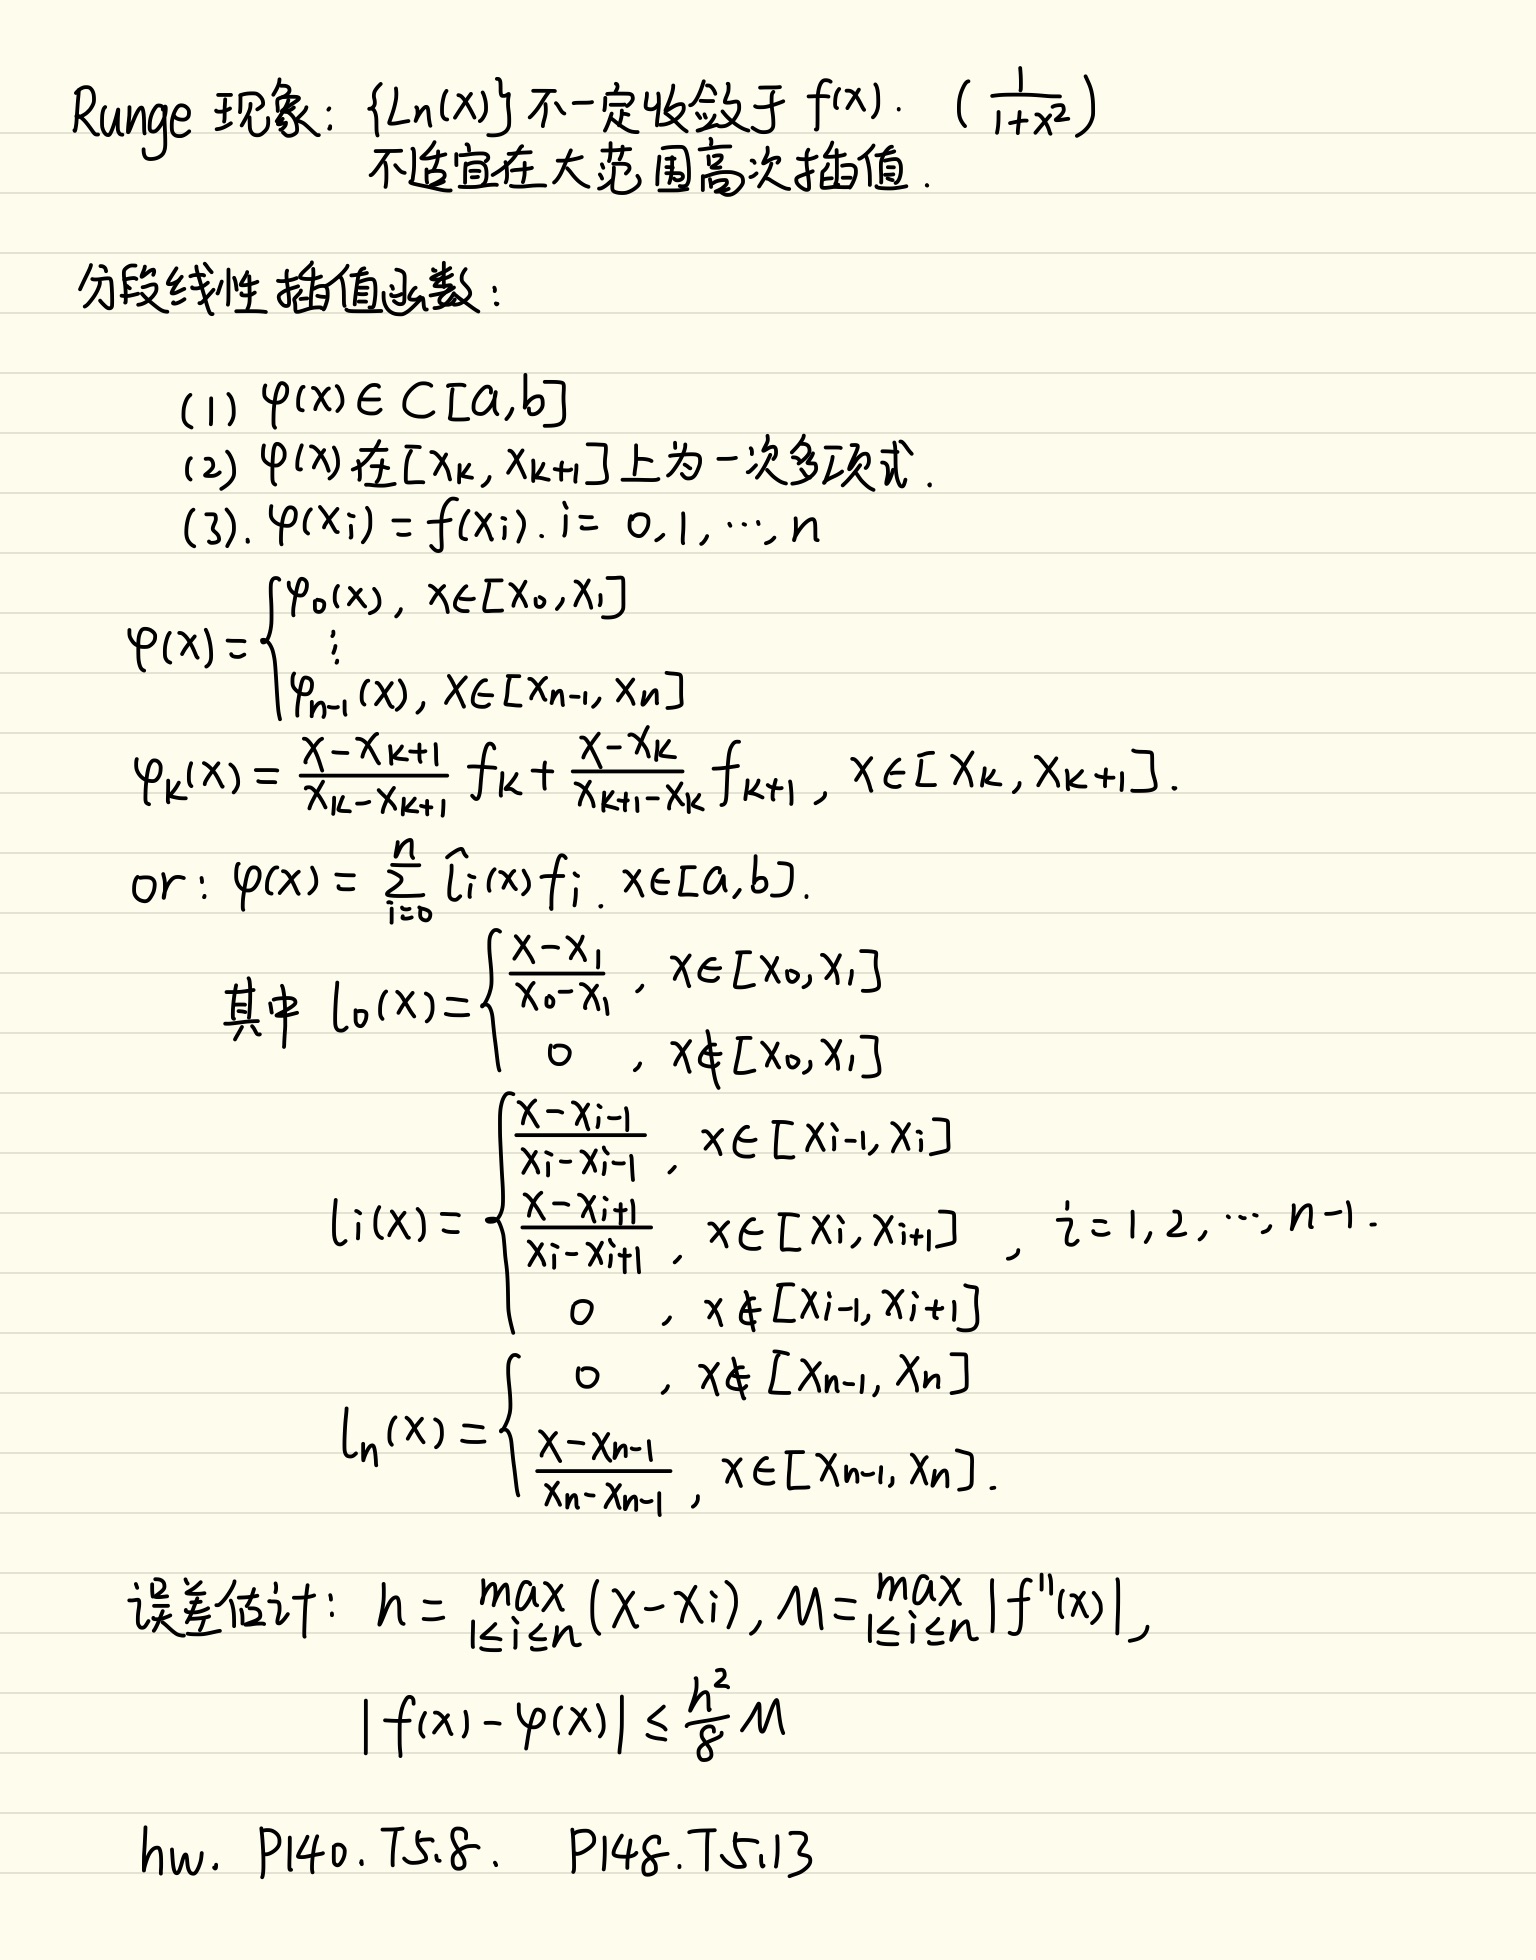 Runge 现象: {Ln(x)} 不一定收敛于 f(x). (1/(1+x²))
不适宜在大范围高次插值.
分段线性插值函数:
(1) φ(x)∈C[a,b]
(2) φ(x)在[x_k, x_{k+1}]上为一次多项式.
(3). φ(x_i)=f(x_i). i= 0,1,…,n
φ(x)= { φ_0(x), x∈[x_0,x_1]
⋮
φ_{n-1}(x), x∈[x_{n-1}, x_n]
φ_k(x) = (x-x_{k+1})/(x_k-x_{k+1}) f_k + (x-x_k)/(x_{k+1}-x_k) f_{k+1}, x∈[x_k, x_{k+1}].
or: φ(x) = ∑_{i=0}^{n} l̂_i(x)f_i. x∈[a,b].
其中 l_0(x)= { (x-x_1)/(x_0-x_1), x∈[x_0,x_1]
0, x∉[x_0,x_1]
l_i(x)= { (x-x_{i-1})/(x_i-x_{i-1}), x∈[x_{i-1},x_i]
(x-x_{i+1})/(x_i-x_{i+1}), x∈[x_i,x_{i+1}], i=1,2,…,n-1.
0, x∉[x_{i-1},x_{i+1}]
l_n(x)= { 0, x∉[x_{n-1},x_n]
(x-x_{n-1})/(x_n-x_{n-1}), x∈[x_{n-1},x_n].
误差估计: h = max_{1≤i≤n}(x-x_i), M=max_{1≤i≤n}|f''(x)|,
|f(x)-φ(x)| ≤ h²/8 M
hw. P140. T5.8. P148. T5.13